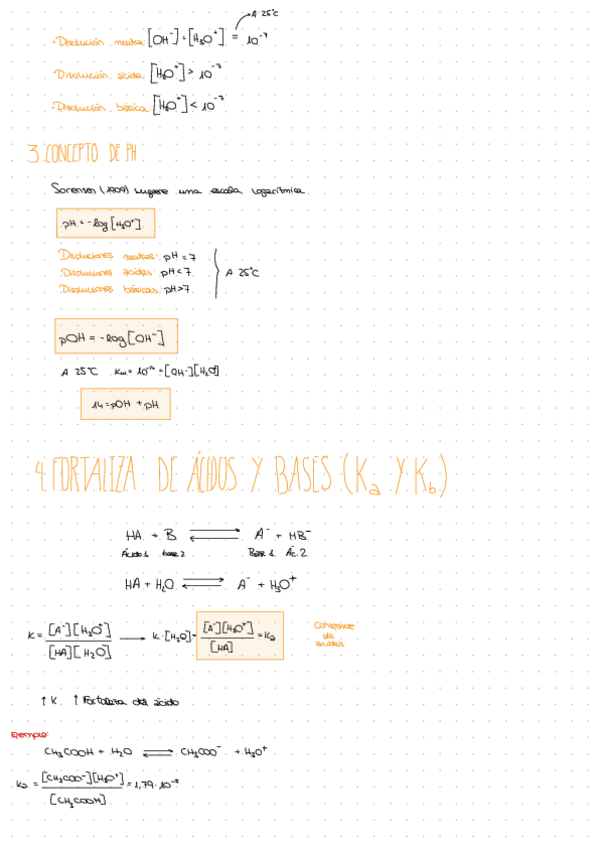 A 25°C
· Disolución neutra: [OH⁻] = [H₃O⁺] = 10⁻⁷
· Disolución ácida: [H₃O⁺] > 10⁻⁷
· Disolución básica: [H₃O⁺] < 10⁻⁷
3. CONCEPTO DE PH
Sorensen (1909) sugiere una escala logarítmica.
pH = -log[H₃O⁺]
Disoluciones neutras: pH = 7
Disoluciones ácidas: pH < 7
Disoluciones básicas: pH > 7
A 25°C
pOH = -log[OH⁻]
A 25°C Kw = 10⁻¹⁴ = [OH⁻][H₂O]
14 = pOH + pH
4. FORTALEZA DE ÁCIDOS Y BASES (Ka Y Kb)
HA + B ⇌ A⁻ + HB⁻
Ácido 1 base 2 Base 1 Ác. 2
HA + H₂O ⇌ A⁻ + H₃O⁺
K = [A⁻][H₃O⁺] / [HA][H₂O] → K·[H₂O] = [A⁻][H₃O⁺] / [HA] = Ka
Constante
de
acidez
↑ K ↑ Fortaleza del ácido
Ejemplo:
CH₃COOH + H₂O ⇌ CH₃COO⁻ + H₃O⁺
Ka = [CH₃COO⁻][H₃O⁺] / [CH₃COOH] = 1,79·10⁻⁵